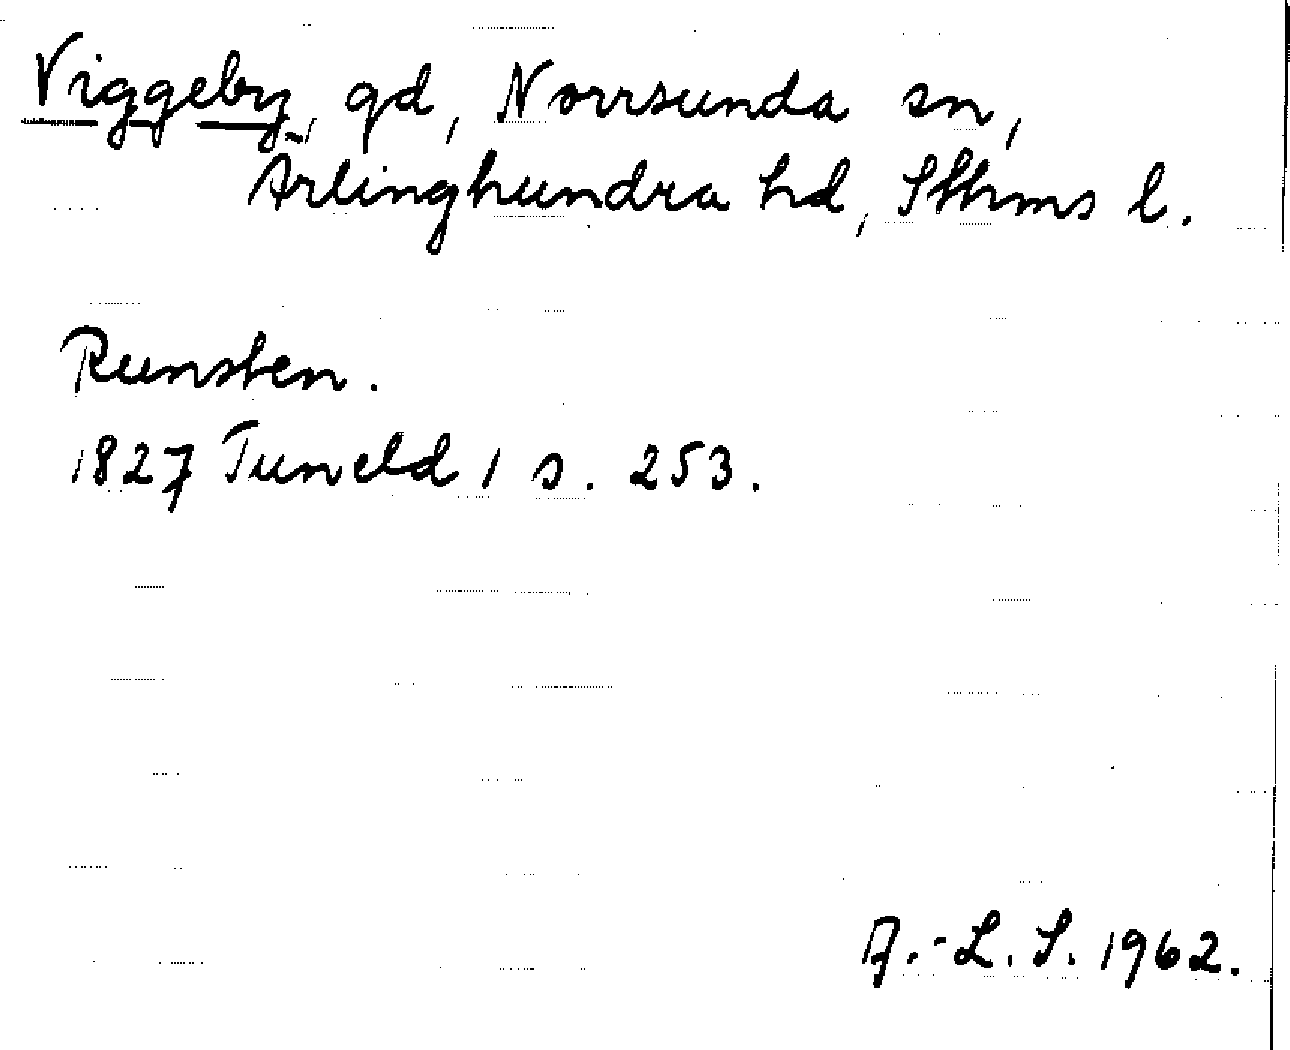 Viggeby, gd, Norrsunda sn,
Ärlinghundra hd, Sthms l.
Runsten.
1827 Tuneld 1 s. 253.
A.-L. S. 1962.